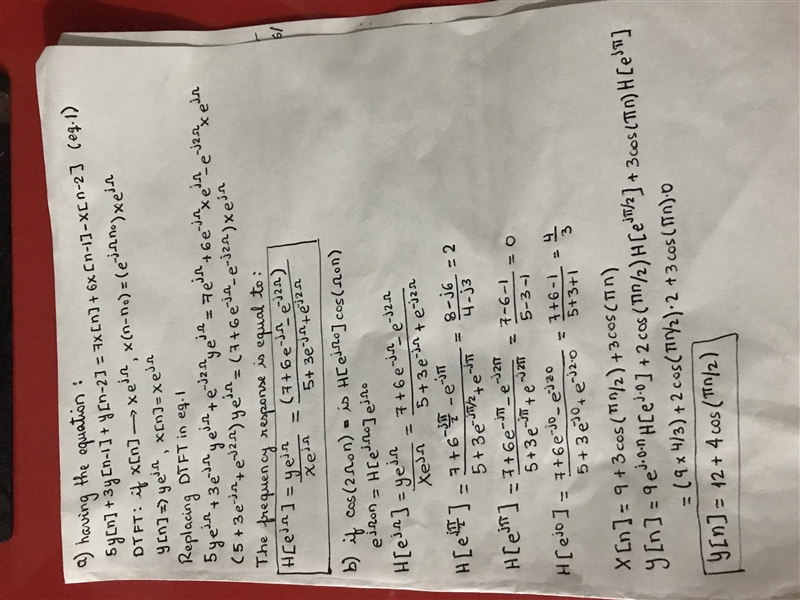 a) having the equation:
5y[n]+3y[n-1]+y[n-2]=7x[n]+6x[n-1]-x[n-2] (eq.1)
DTFT: if x[n] → Xe^{jΩ}, x(n-n₀)=(e^{-jΩn₀})Xe^{jΩ}
y[n]⇒ ye^{jΩ}, x[n]=xe^{jΩ}
Replacing DTFT in eq.1
5ye^{jΩ}+3e^{-jΩ}ye^{jΩ}+e^{-j2Ω}ye^{jΩ}=7e^{jΩ}+6e^{-jΩ}xe^{jΩ}-e^{-j2Ω}xe^{jΩ}
(5+3e^{-jΩ}+e^{-j2Ω})ye^{jΩ}=(7+6e^{-jΩ}-e^{-j2Ω})xe^{jΩ}
The frequency response is equal to:
H[e^{jΩ}]=ye^{jΩ}/xe^{jΩ}=(7+6e^{-jΩ}-e^{-j2Ω})/5+3e^{-jΩ}+e^{j2Ω}
b) if cos(2Ω₀n)= is H[e^{jΩ₀}]cos(Ω₀n)
e^{jΩ₀n}=H[e^{jΩ₀}]e^{jΩ₀}
H[e^{jΩ}]=ye^{jΩ}/Xe^{jΩ}=7+6e^{-jΩ}-e^{-j2Ω}/5+3e^{-jΩ}+e^{-j2Ω}
H[e^{jπ/2}]=7+6^{-jπ/2}-e^{-jπ}/5+3e^{-jπ/2}+e^{-jπ}=8-j6/4-j3=2
H[e^{jπ}]=7+6e^{-jπ}-e^{-j2π}/5+3e^{-jπ}+e^{-j2π}=7-6-1/5-3-1=0
H[e^{j0}]=7+6e^{-j0}-e^{j20}/5+3e^{j0}+e^{-j2·0}=7+6-1/5+3+1=4/3
X[n]=9+3cos(πn/2)+3cos(πn)
y[n]=9e^{j·0·n}H[e^{j·0}]+2cos(πn/2)H[e^{jπ/2}]+3cos(πn)H[e^{jπ}]
=(9×4/3)+2cos(πn/2)·2+3cos(πn)·0
y[n]=12+4cos(πn/2)